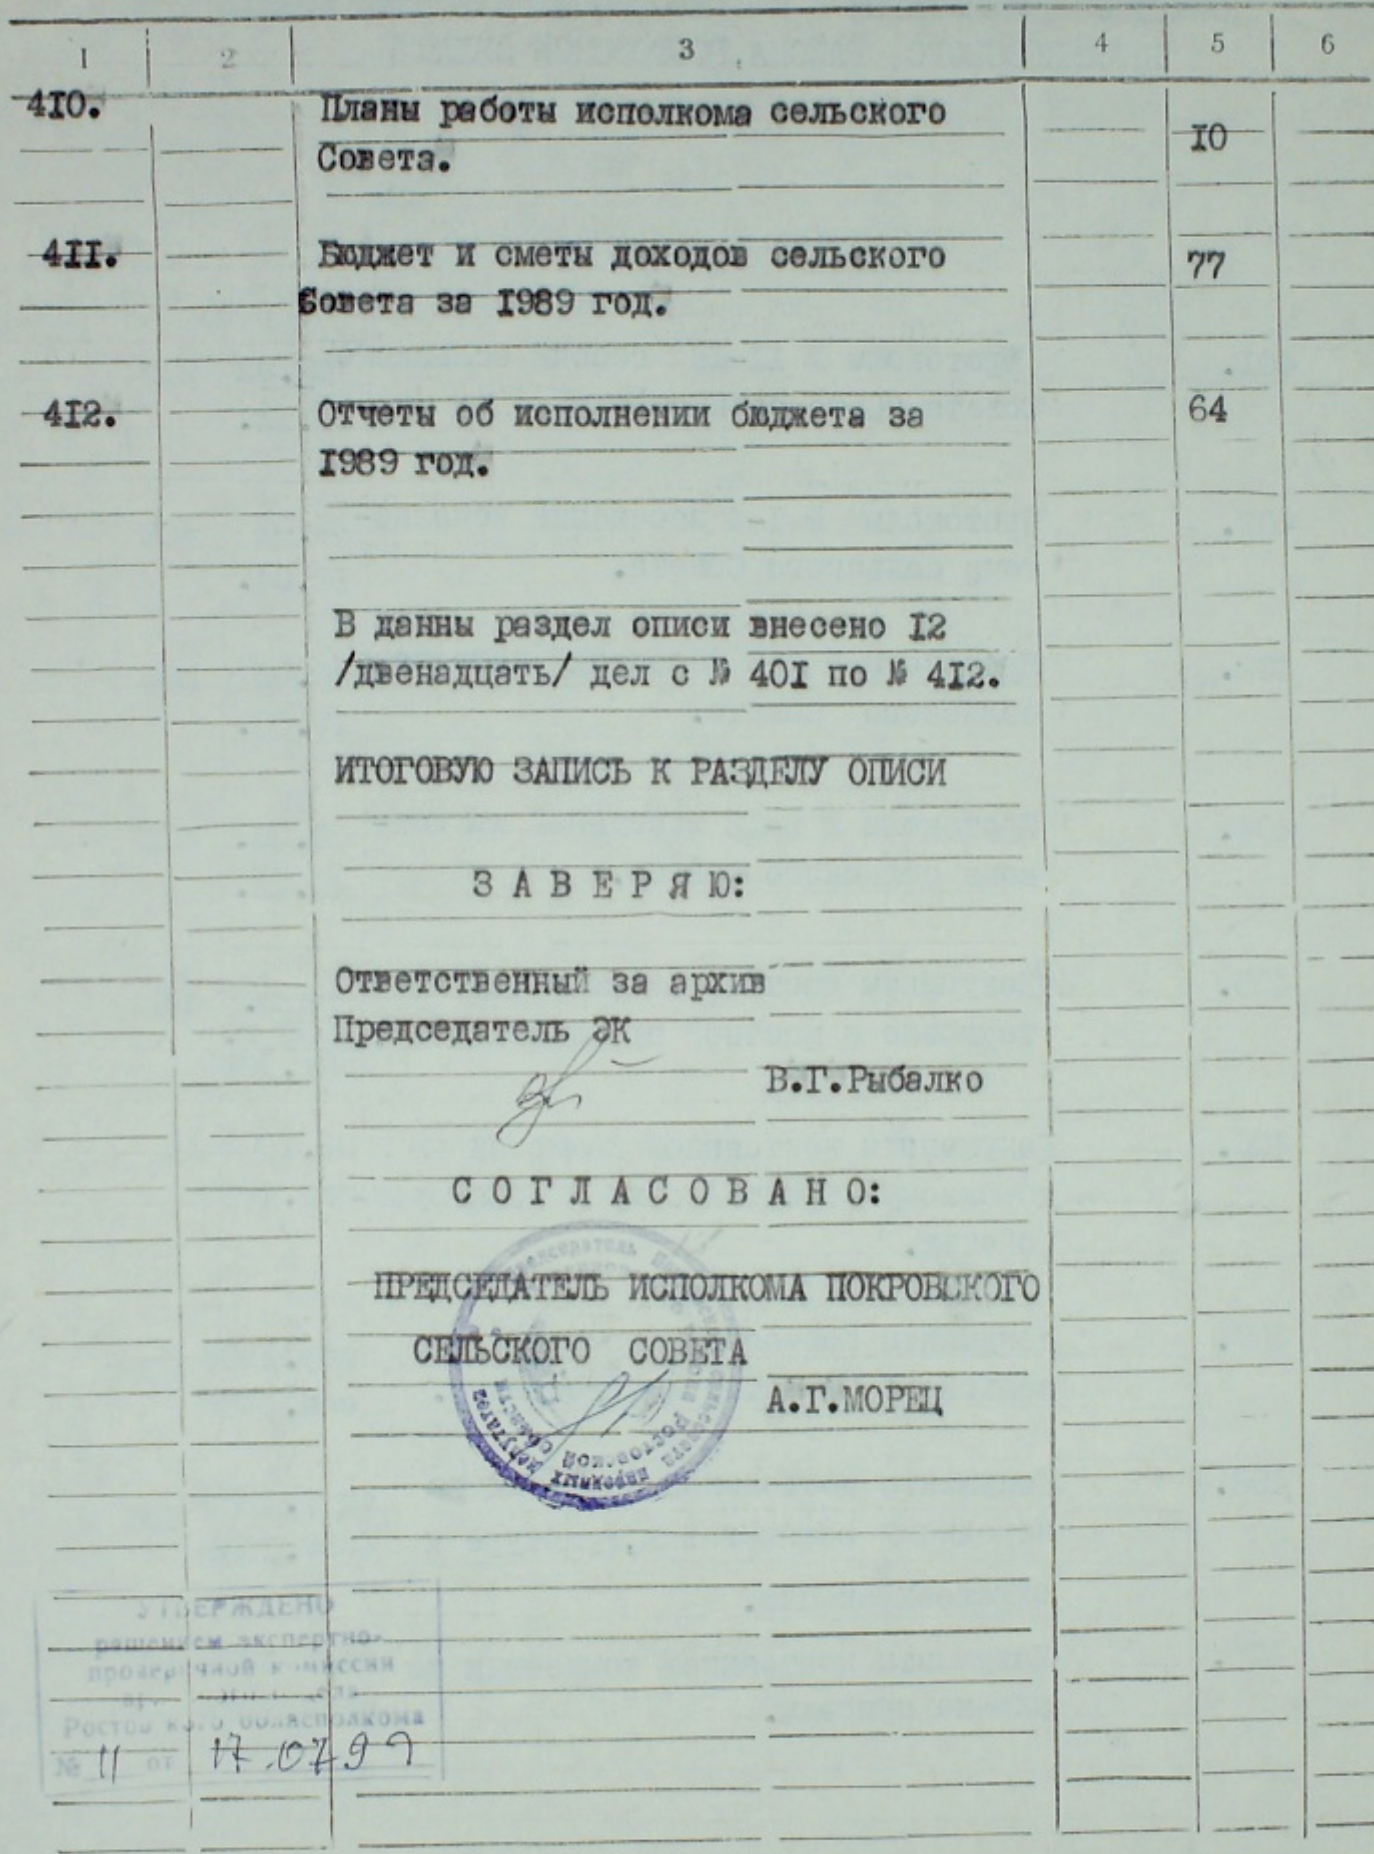 1 2 3 4 5 6
410. Планы работы исполкома сельского
Совета. 10
411. Бюджет и сметы доходов сельского 77
Совета за 1989 год.
412. Отчеты об исполнении бюджета за 64
1989 год.
В данны раздел описи внесено 12
/двенадцать/ дел с № 401 по № 412.
ИТОГОВУЮ ЗАПИСЬ К РАЗДЕЛУ ОПИСИ
З А В Е Р Я Ю:
Ответственный за архив
Председатель ЭК
В.Г.Рыбалко
С О Г Л А С О В А Н О:
ПРЕДСЕДАТЕЛЬ ИСПОЛКОМА ПОКРОВСКОГО
СЕЛЬСКОГО СОВЕТА
А.Г.МОРЕЦ
народных депутатов
Ростовской области
УТВЕРЖДЕНО
решением экспертно-
проверочной комиссии
Ростовского облисполкома
№ 11 от 17.07.9